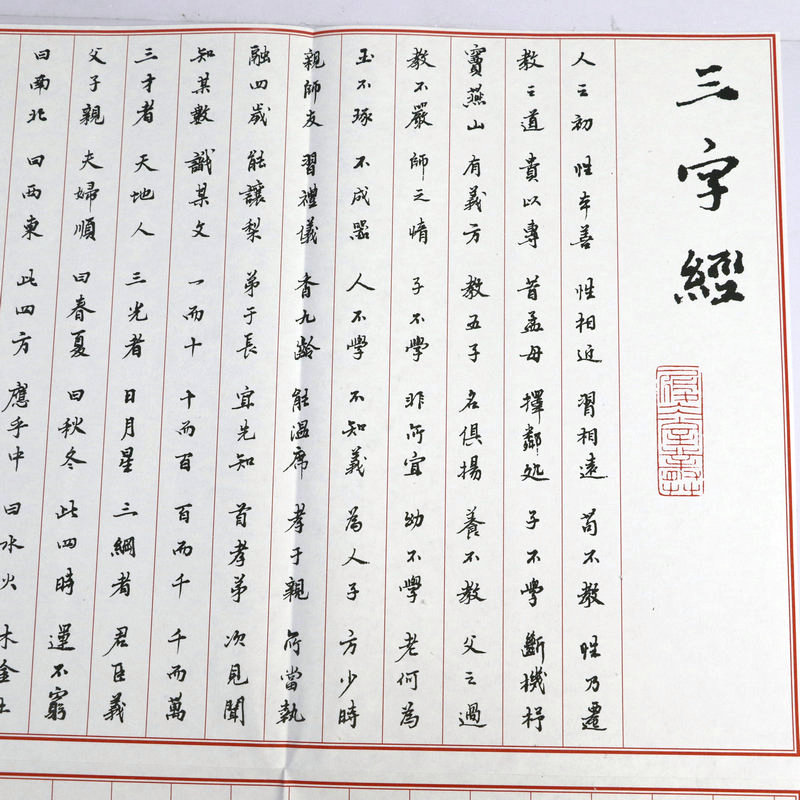 三字經
人之初 性本善 性相近 習相遠 苟不教 性乃遷
教之道 貴以專 昔孟母 擇鄰処 子不學 斷機杼
竇燕山 有義方 教五子 名俱揚 養不教 父之過
教不嚴 師之惰 子不學 非所宜 幼不學 老何為
玉不琢 不成器 人不學 不知義 為人子 方少時
親師友 習禮儀 香九齡 能溫席 孝于親 所當執
融四歲 能讓梨 弟于長 宜先知 首孝弟 次見聞
知某數 識某文 一而十 十而百 百而千 千而萬
三才者 天地人 三光者 日月星 三綱者 君臣義
父子親 夫婦順 曰春夏 曰秋冬 此四時 運不窮
曰南北 曰西東 此四方 應乎中 曰水火 木金土